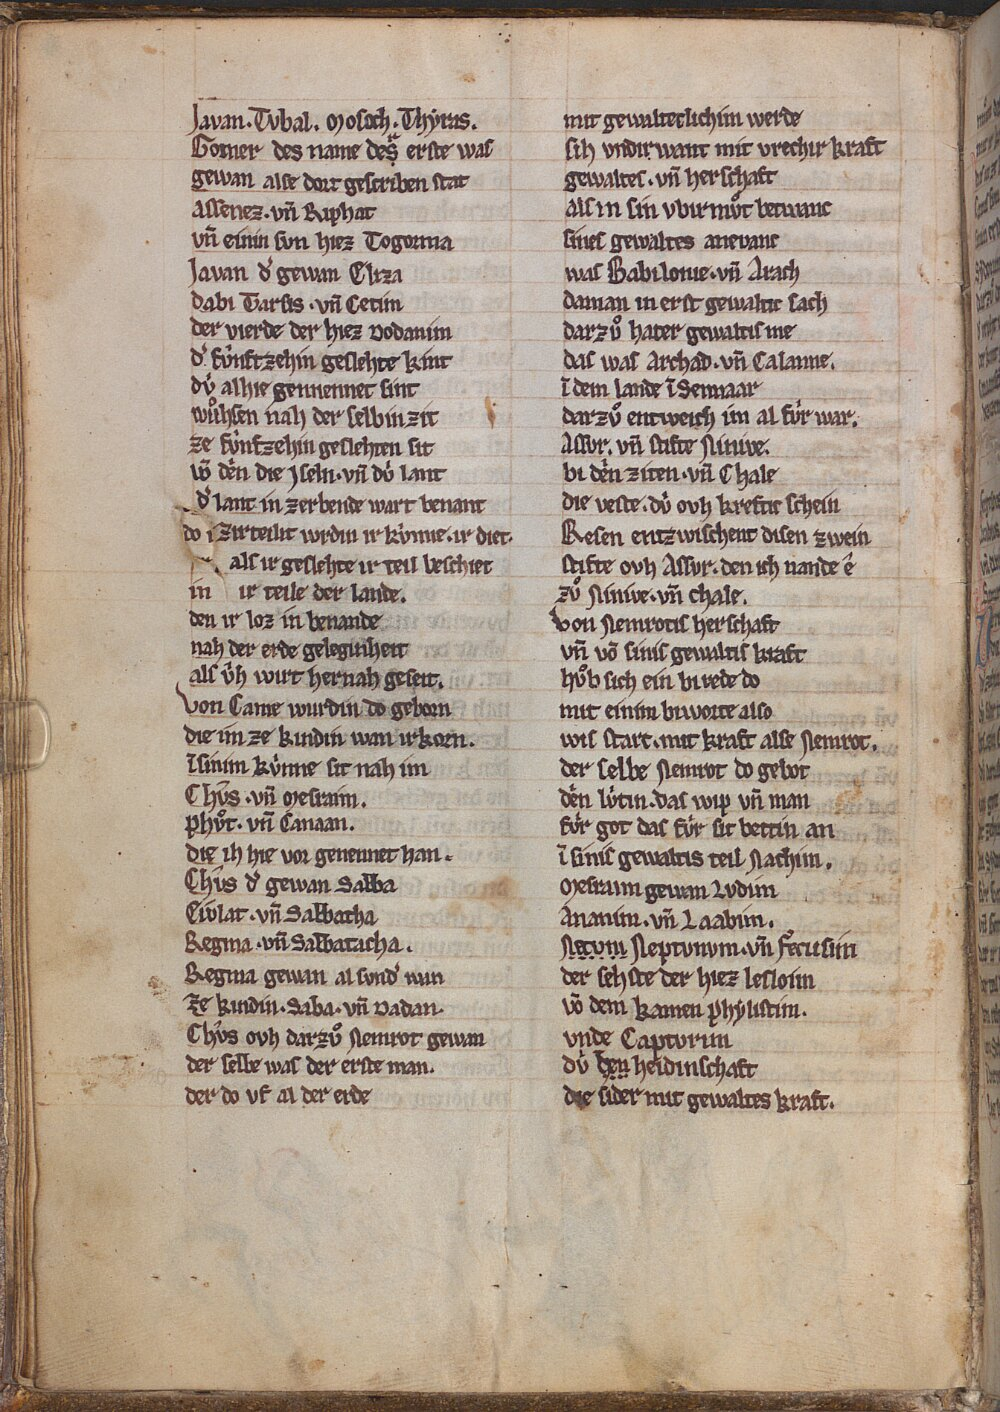 Javan · Tvbal · Mosoch · Thyras.
Gomer des name des erste was
gewan alse dort gescriben stat
Assenez · vn̄ Riphat
vn̄ einin svn hiez Togorma
Javan d᾽ gewan Eliza
dabi Tarsis · vn̄ Cetim
der vierde der hiez Dodanim
d᾽ fv́nftzehin geslehte kint
dv́ alhie gennennet sint
wůhsen nah der selbin zit
ze fv́nfzehin geslehten sit
vō den die Iseln · vn̄ dv́ lant
d᾽ lant in zerbende wart benant
do zirteilit wrdin ir kv́nne · ir diet ·
als ir geslehte ir teil beschiet
in ir teile der lande.
den ir loz in benande
nah der erde geleginheit
als v́h wirt hernah geseit.
Von Came wurdin do geborn
die im ze kindin warn irkorn.
ī sinim kv́nne sit nah im
Chvs · vn̄ Mesraim.
phvt · vn̄ Canaan.
die ih hie vor genennet han.
Chvs d᾽ gewan Sabba
Eivlat · vn̄ Sabbatha
Regma · vn̄ Sabbaticha.
Regma gewan al svnd᾽ wan
ze kindin · Saba · vn̄ Dadan ·
Chvs ovh darzů Nemrot gewan
der selbe was der erste man.
der do vf al der erde
mit gewalteclichim werde
sih vndirwant mit vrechir kraft
gewaltes · vn̄ herschaft
als in sin vbirmůt betwanc
sines gewaltes anevanc
was Babilonie · vn̄ Arach
daman in erst gewaltic sach
darzů hater gewaltis me
das was Archad · vn̄ Calanne.
ī dem lande ī Sennaar
darzů entweich im al fv́r war.
Assvr · vn̄ stifte Ninive.
bi den ziten · vn̄ Chale
die veste · dv́ ovh kreftic schein
Resen entzwischent disen zwein
stifte ovh Assvr · den ich nande ê
zů Ninive · vn̄ chale.
Von Nemrotis herschaft
vn̄ vō sinis gewaltis kraft
hůb sich ein birede do
mit einim biworte also
wis starc · mit kraft alse Nemrot.
der selbe Nemrot do gebot
den lv́tin · das wip vn̄ man
fv́r got das fv́r sit bettin an
ī sinis gewaltis teil Nachim.
Mesraim gewan Lvdim
Ananim · vn̄ Laabim.
Netvm Neptvnvm · vn̄ Fetrusiin
der sehste der hiez lesloim
vō dem kamen phylistim.
vnde Captvrim
dv́ den heidinschaft
die sider mit gewaltes kraft.